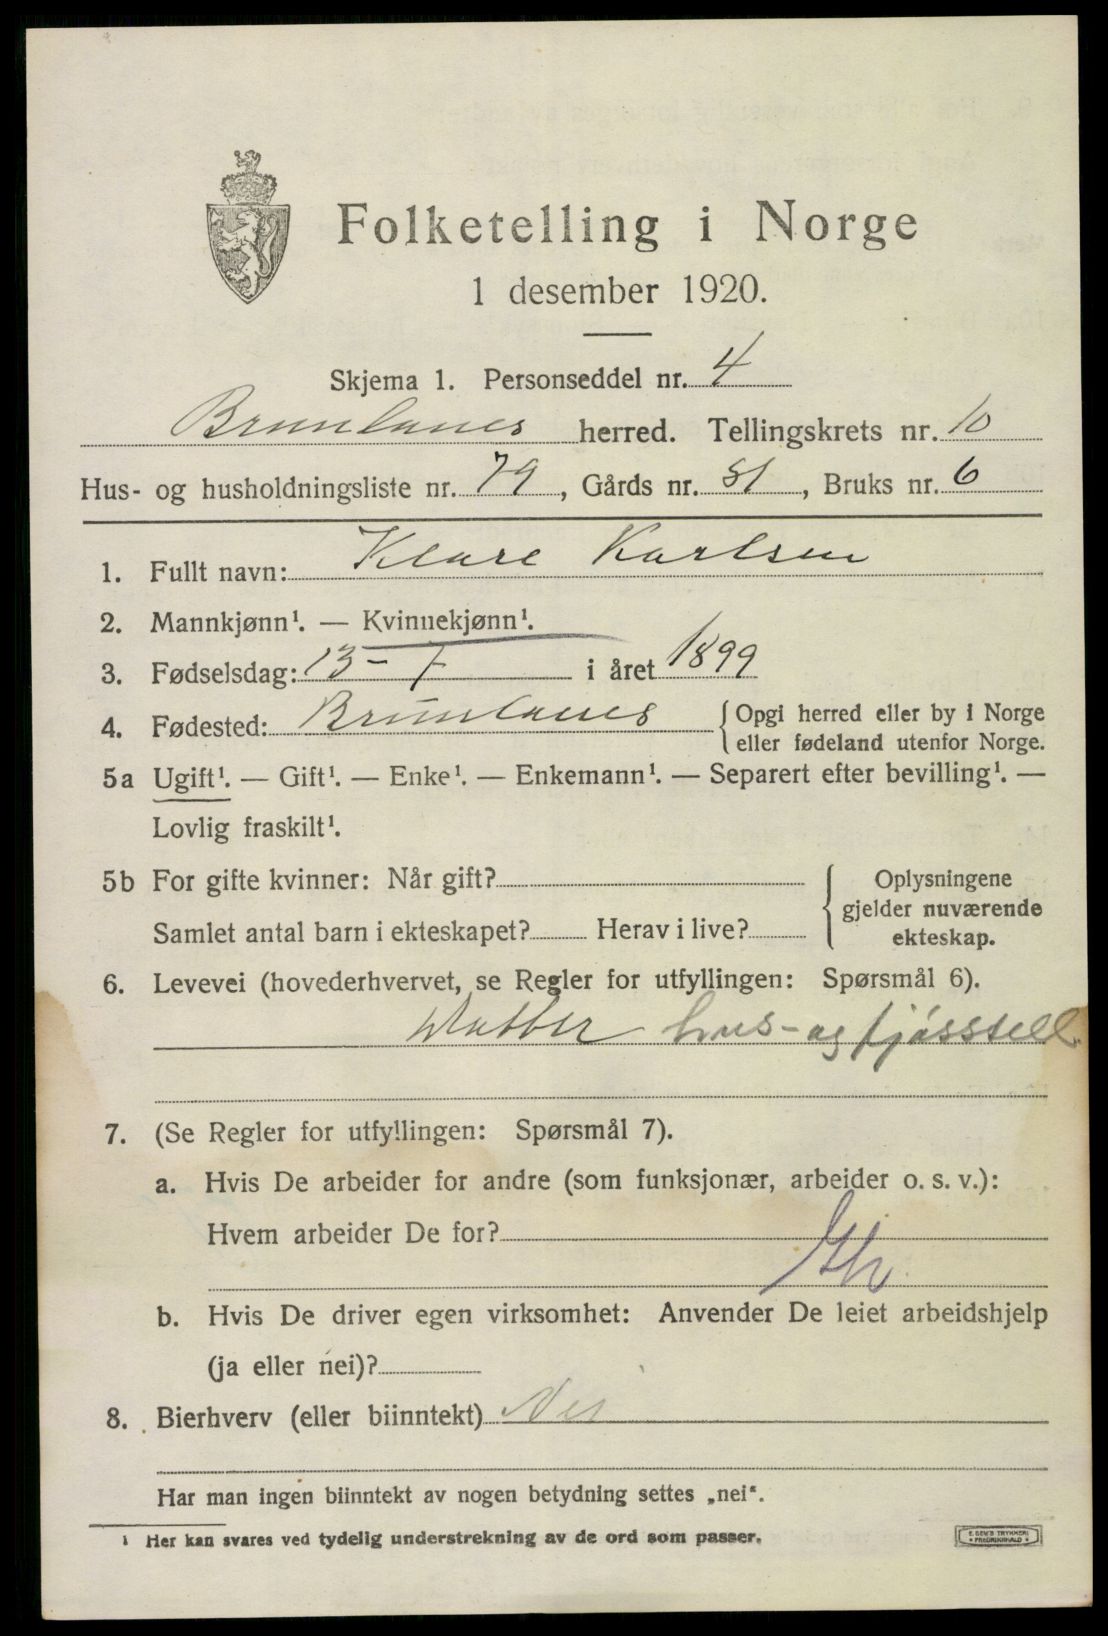 Folketelling i Norge
1 desember 1920.
Skjema 1. Personseddel nr. 4
Brunlanes herred. Tellingskrets nr. 10
Hus- og husholdningsliste nr. 79, Gårds nr. 81, Bruks nr. 6
1. Fullt navn: Klare Karlsen
2. Mannkjønn¹. — Kvinnekjønn¹.
3. Fødselsdag: 13-7 i året 1899
4. Fødested: Brunlanes {Opgi herred eller by i Norge
eller fødeland utenfor Norge.
5a Ugift¹. — Gift¹. — Enke¹. — Enkemann¹. — Separert efter bevilling¹. —
Lovlig fraskilt¹.
5b For gifte kvinner: Når gift? {Oplysningene
gjelder nuværende
Samlet antal barn i ekteskapet? Herav i live? ekteskap.
6. Levevei (hovederhvervet, se Regler for utfyllingen: Spørsmål 6).
Datter hus- og fjósstell
7. (Se Regler for utfyllingen: Spørsmål 7).
a. Hvis De arbeider for andre (som funksjonær, arbeider o. s. v.):
Hvem arbeider De for?
b. Hvis De driver egen virksomhet: Anvender De leiet arbeidshjelp
(ja eller nei)?
8. Bierhverv (eller biinntekt) Nei
Har man ingen biinntekt av nogen betydning settes „nei“.
¹ Her kan svares ved tydelig understrekning av de ord som passer.
E. SEM'S TRYKKERI
FREDRIKSHALD